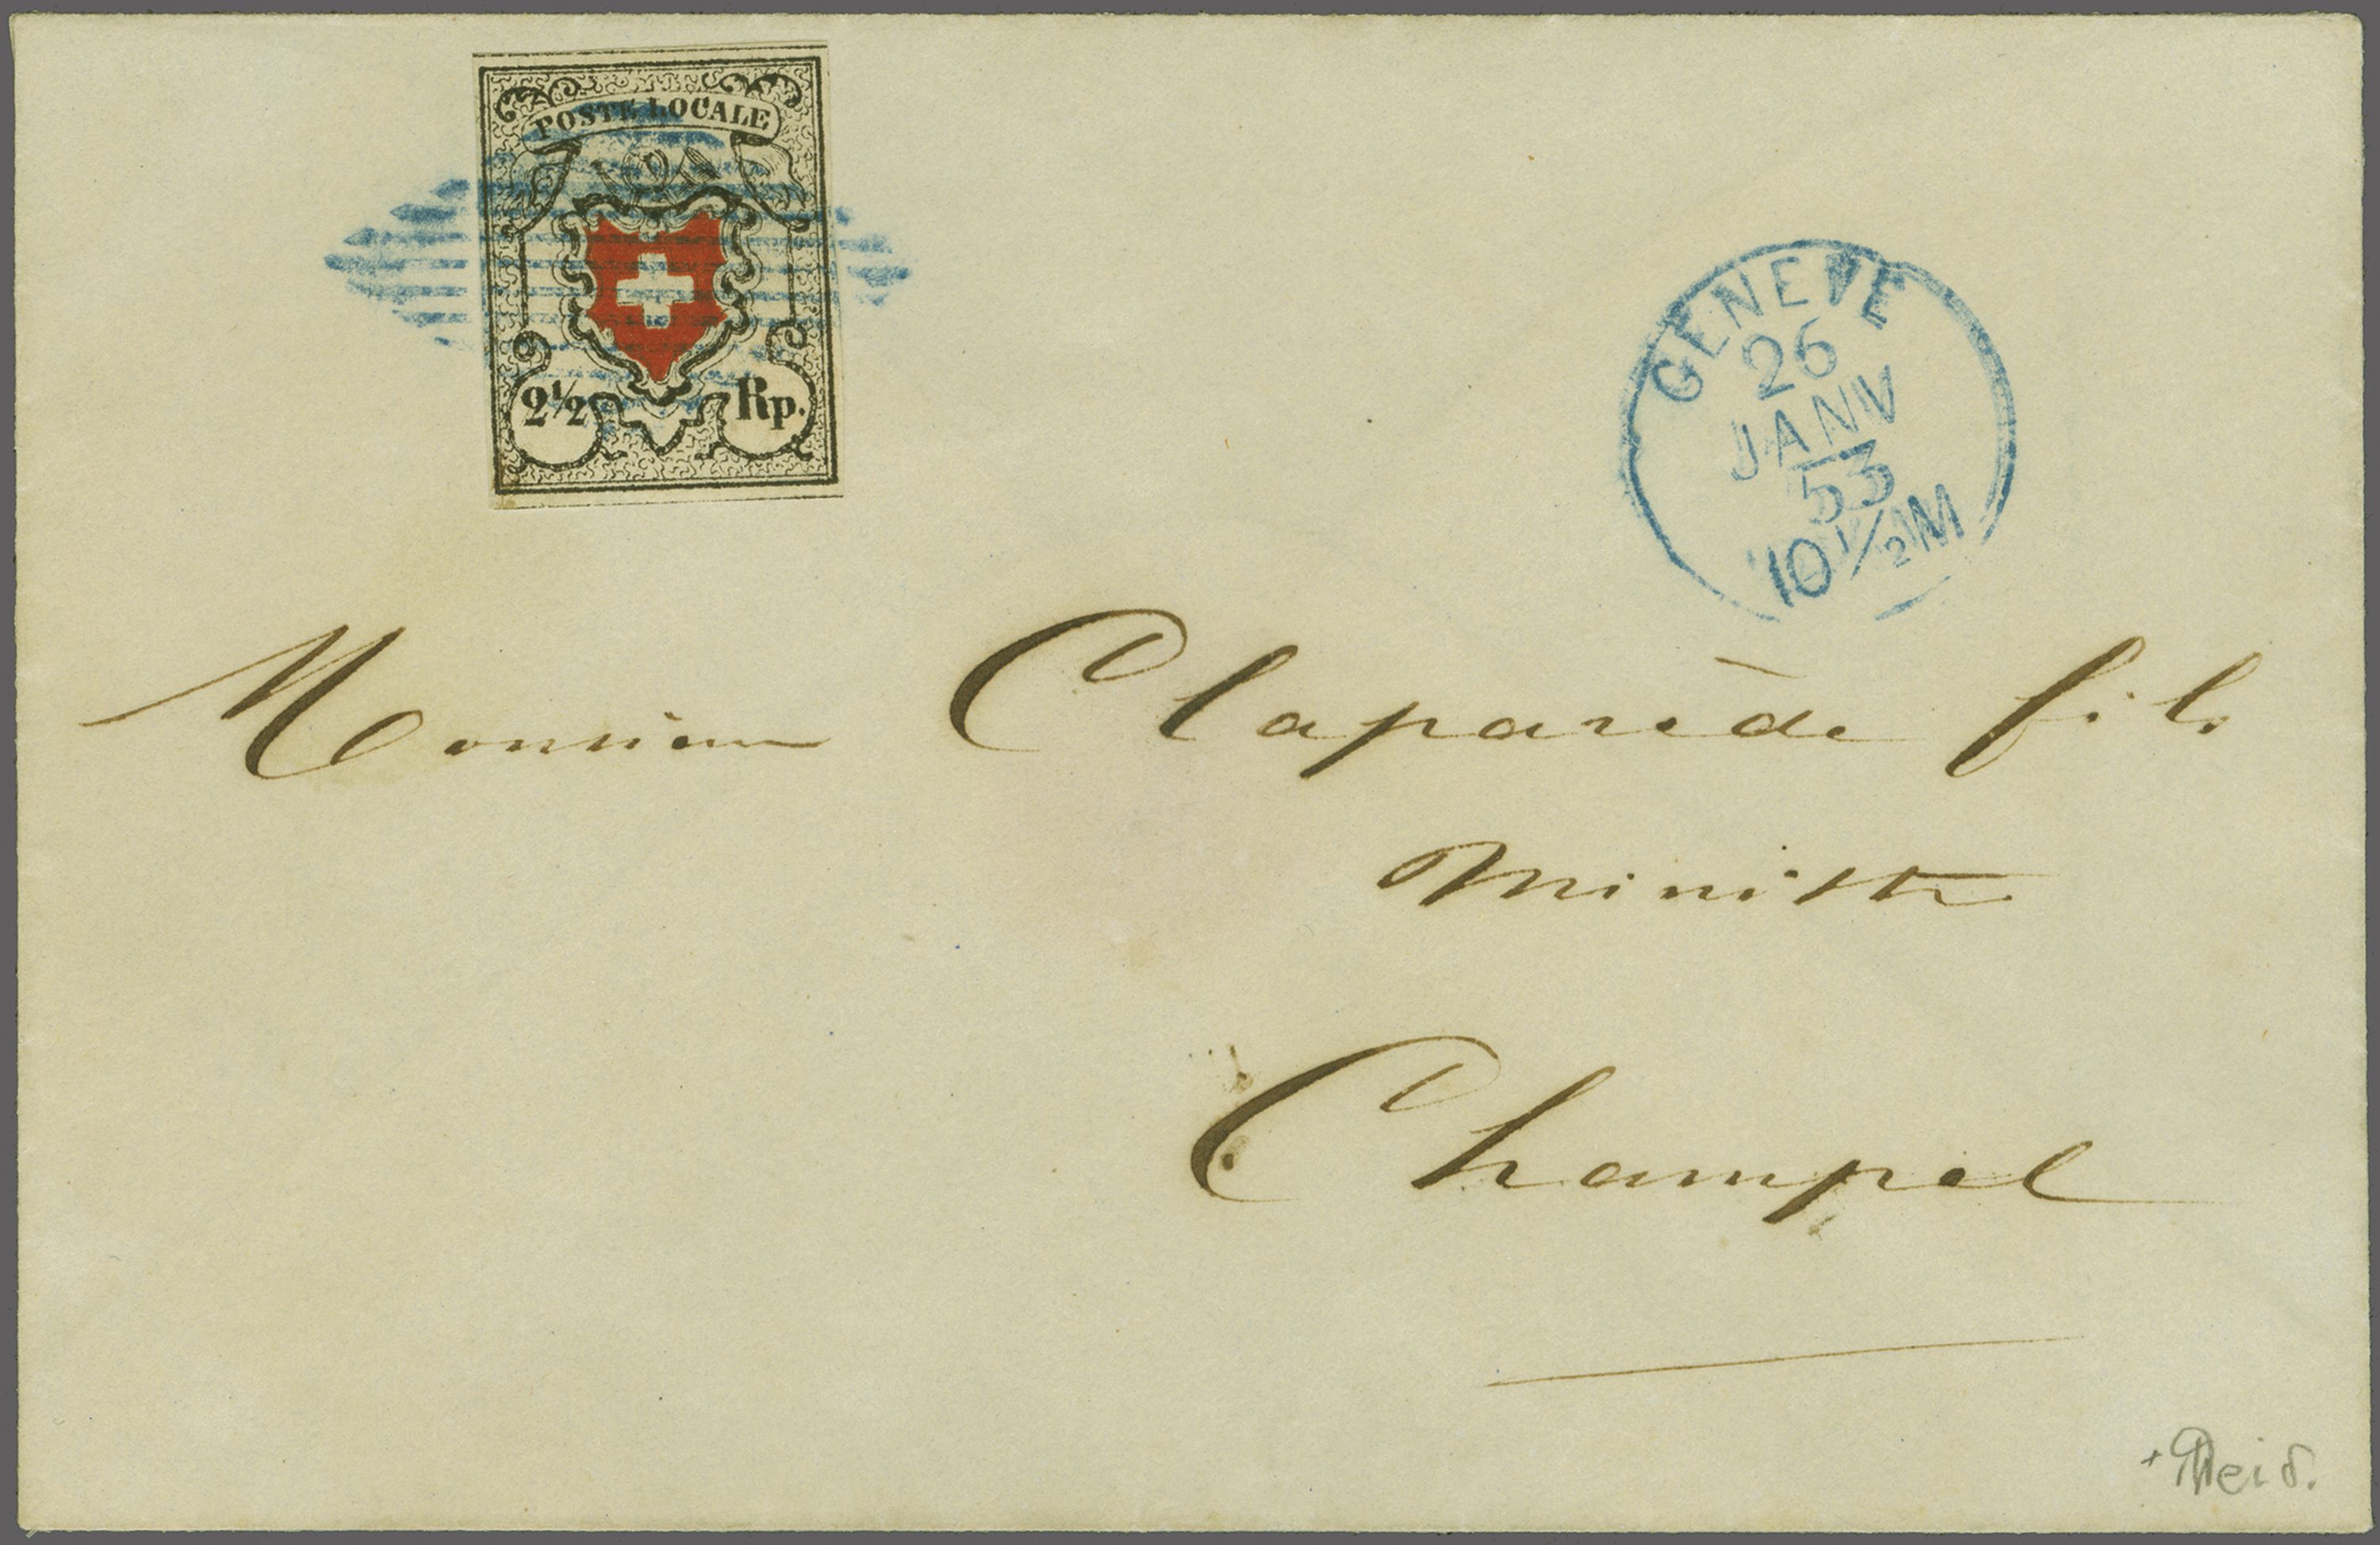 POSTE LOCALE
2½ Rp.
GENEVE
26
JANV
53
10½M
Monsieur Claparède fils
Ministre
Champel